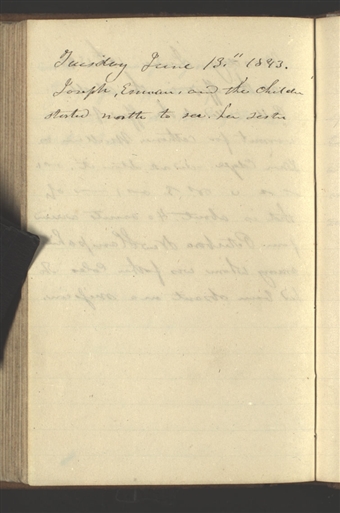 Tuesday June 13." 1893.
Joseph, Emma, and the children
started north to see her sister